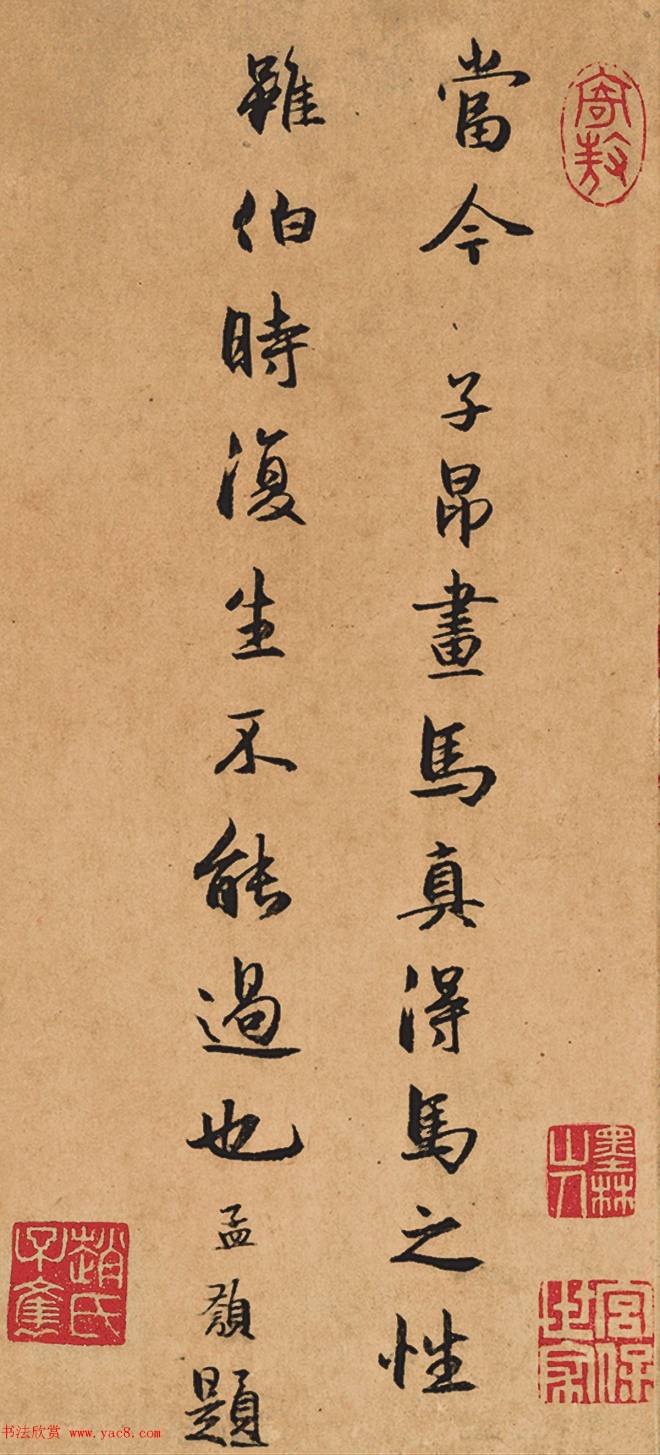 當今子昂畫馬真得馬之性
雖伯時復生不能過也孟頫題
寄敖
墨林山人
宮保世家
趙氏子俊
书法欣赏 www.yac8.com